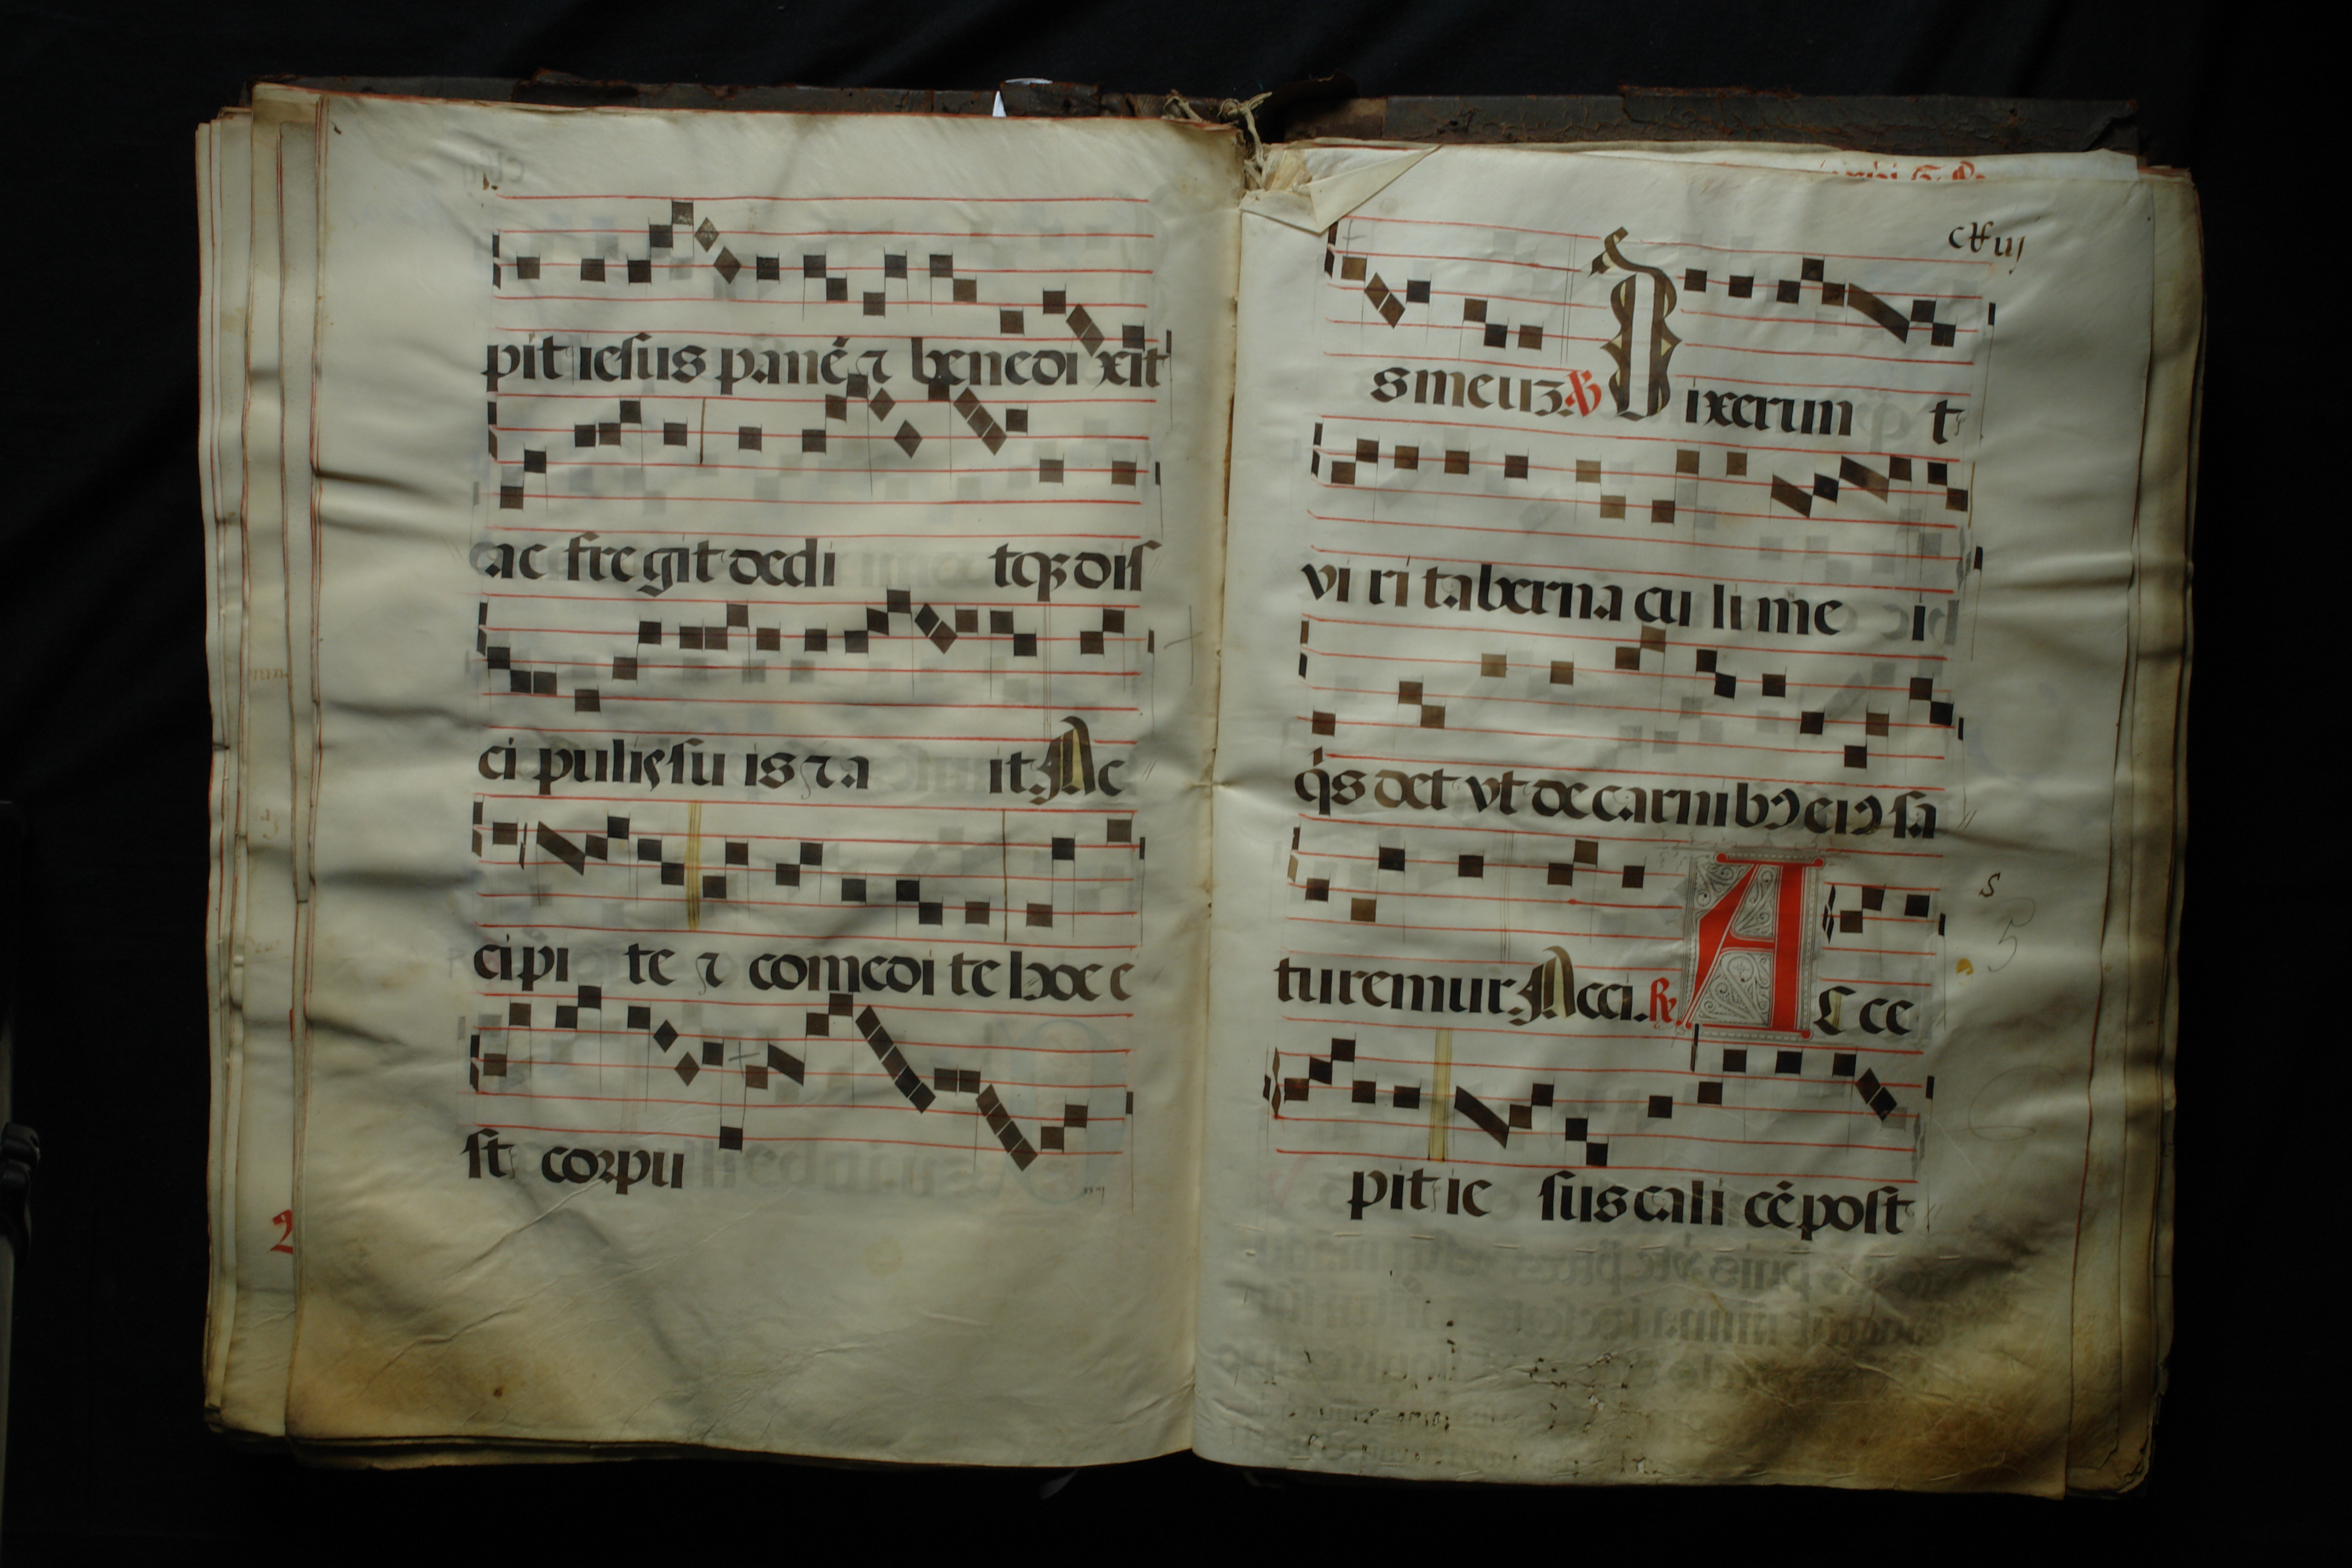 pit iesus panē ⁊ benedi xit
ac fregit dedi tqꝫ dis
ci pulis su is ⁊ a it Ac
cipi te ⁊ comedi te hoc e
st corpu
cxviij
s meuꝫ ℣ Dixerun t
viri taberna cu li me i
q̇s det vt de carnibꝰ eiꝰ sa
turemur Acci. ℟ A c ce
pit ie sus cali cē post